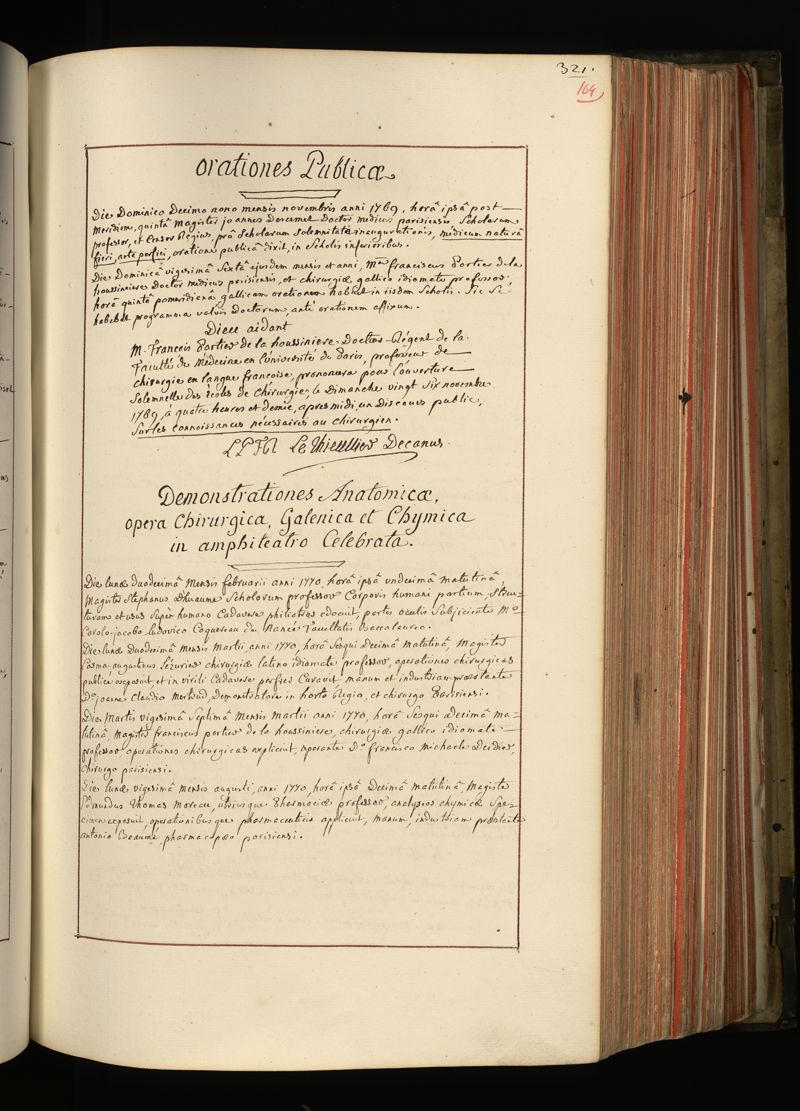 321.
164
orationes Publicæ
Die Dominico Decimo nono mensis novembris anni 1769, horâ ipsâ post
Meridiem, quintâ Magister joannes Descemet Doctor medicus parisiensis Scholarum
professor, et Censor Regius, prâ Scholarum Solemnitate inaugurationis, medicum naturâ
fieri, arte perfici, oratione publicâ dixit, in Scholis inferioribus.
Die Dominicâ vigesimâ Sextâ ejusdem mensis et anni, Mer franciscus Portier de la
houssiniere Doctor medicus parisiensis, et chirurgiæ gallico idiomate professor,
horâ quintâ pomeridianâ gallicam orationem habuit in iisdem Scholis. Sic Se
habebat programma valvis Doctorum, antè orationem affixum.
Dieu aidant
M. François Portier de la houssiniere Docteur-Régent de la
Faculté de Médecine en l'université de Paris, professeur de
chirurgie en langue francoise, prononcera pour l'ouverture
Solemnelle des Ecoles de Chirurgie, le Dimanche vingt Six novembre
1769, à quatre heures et demie, apres midi, un Discours public,
Sur les connoissances nécessaires au chirurgien.
Le Thieullier Decanus.
Demonstrationes Anatomicæ,
opera Chirurgica, Galenica et Chymica
in amphiteatro Celebrata.
Die lunæ duodecimâ mensis februarii anni 1770, horâ ipsâ undecimâ matutinâ,
Magister Stephanus Scholarum professor Corporis humani partium, Struc-
turam et usus super humano Cadavere philiatros edocuit, partes oculis Subjiciente Mo
Carolo-jacobo-ludovico Coquereau du Facultatis Baccalaureo.
Die lunæ Duodecimâ Mensis Martii anni 1770, horâ Sesqui decimâ Matutinâ, Magister
Cosma-augustinus Lézurier chirurgiæ latino idiomate professor, operationes chirurgicas
publicè exposuit et in virili Cadavere perfici Curavit manum et industriam præstante
Do joanne Claudio Mertrud Demonstratore in horto Regio, et chirurgo Parisiensi.
Die Martis vigesimâ Septimâ Mensis Martii anni 1770, horâ Sesqui Decimâ ma-
tutinâ, Magister franciscus portier de la houssiniere, chirurgiæ gallico idiomate
professor operationes chirurgicas explicuit, operante Do francisco Michaele Deidier,
Chirurgo parisiensi.
Die lunæ vigesimâ mensis augusti, anni 1770, horâ ipsâ Decimâ matutinâ, Magister
Edmundus Thomas Moreau, utriusque Pharmaciæ professor, analyseos chymicæ Spe-
cimen exposuit, operationibusque pharmaceuticis applicuit, manum, industriam præstante
antonio Beaumé, pharmacopæo parisiensi.